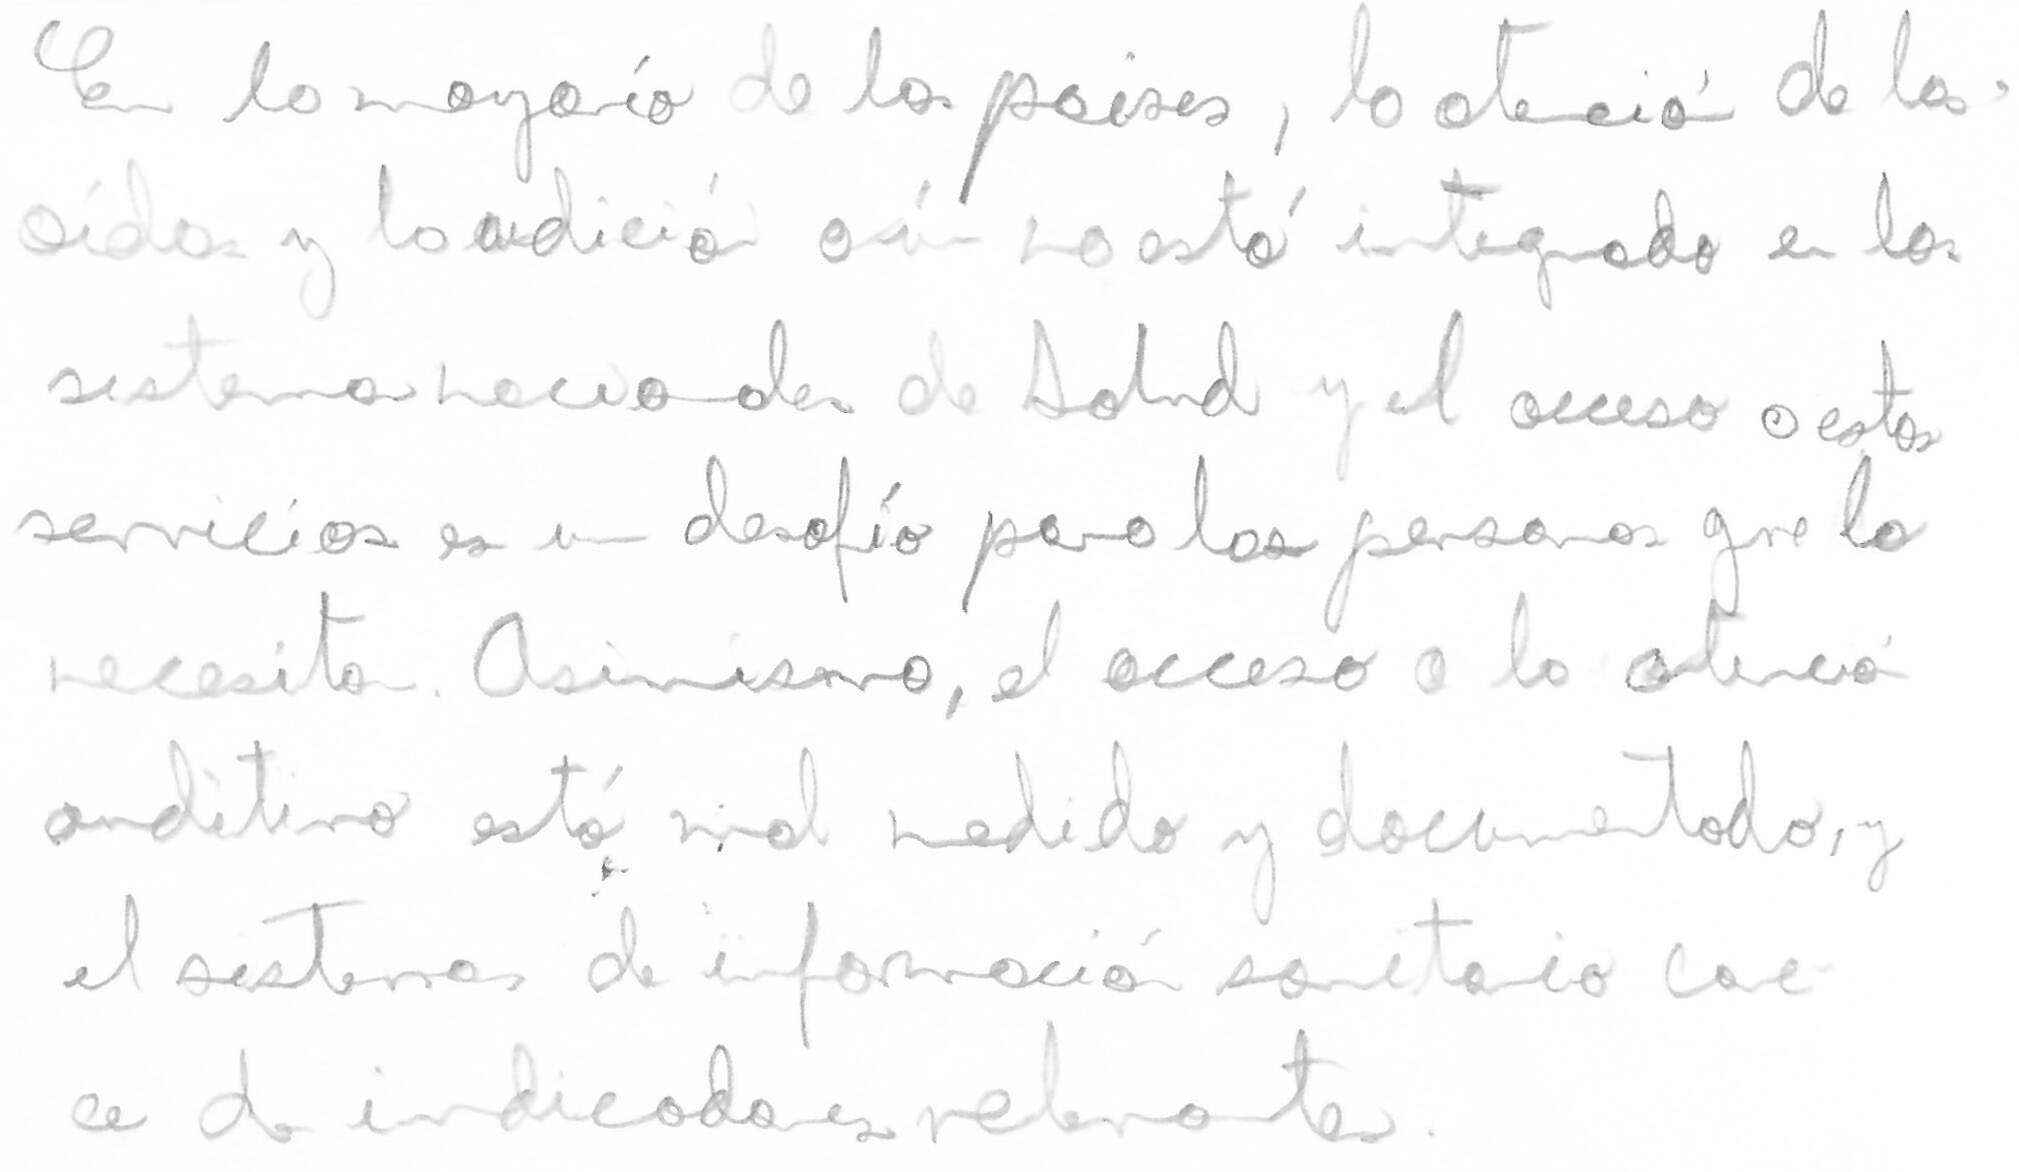 En la mayoría de los países, la atención de los
oídos y la audición aún no está integrada en los
sistemas nacionales de Salud y el acceso a estos
servicios es un desafío para las personas que lo
necesitan. Asimismo, el acceso a la atención
auditiva está mal medido y documentado, y
el sistemas de información sanitario care
ce de indicadores relevantes.